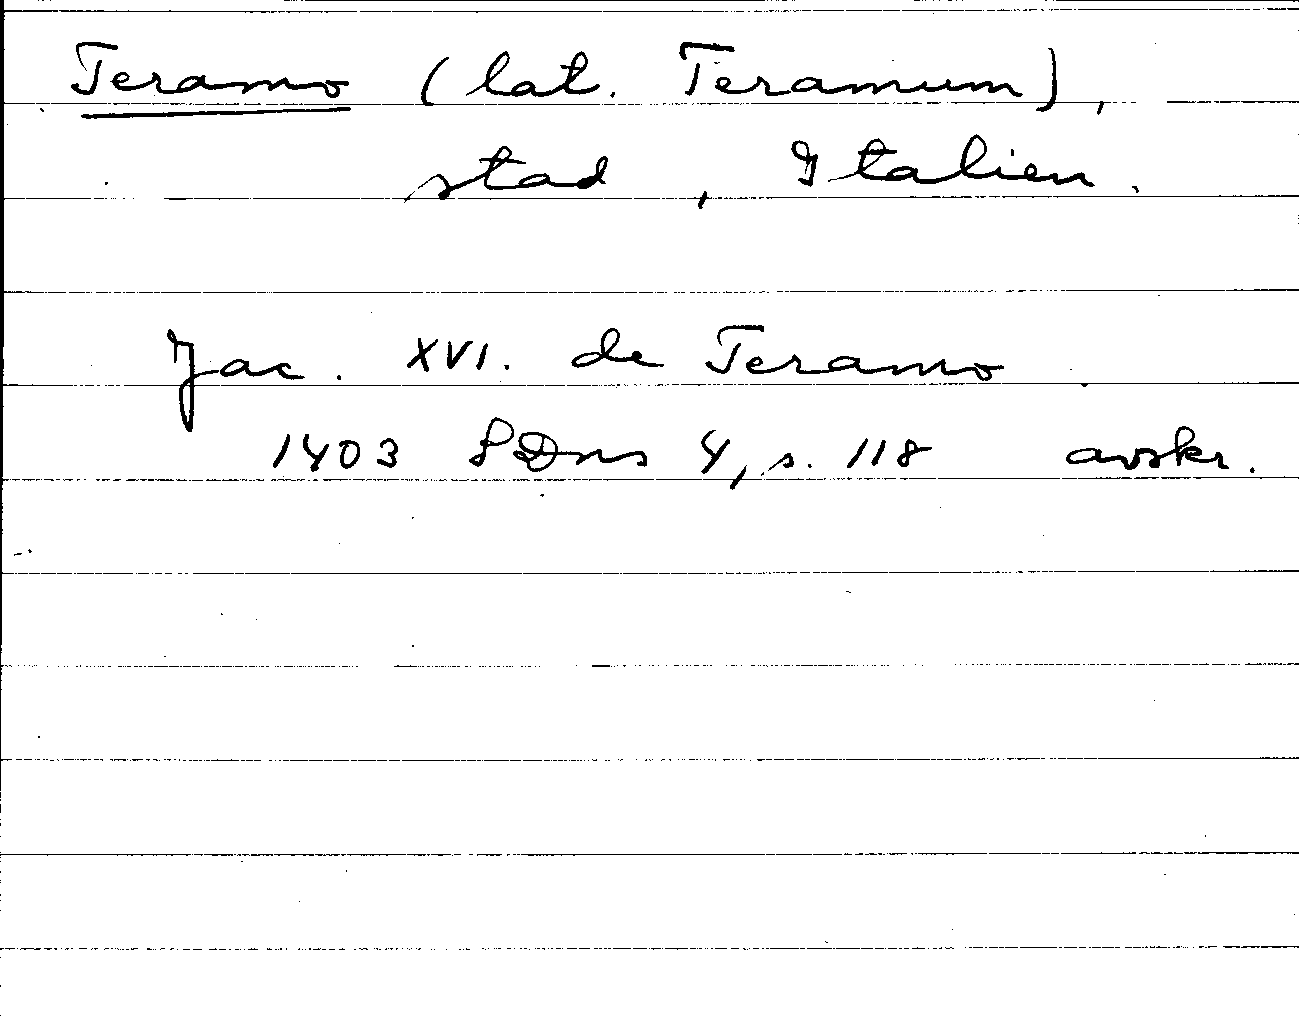 Teramo (lat. Teramum),
stad, Italien.
Jac. XVI. de Teramo
1403 SDns 4, s. 118 avskr.